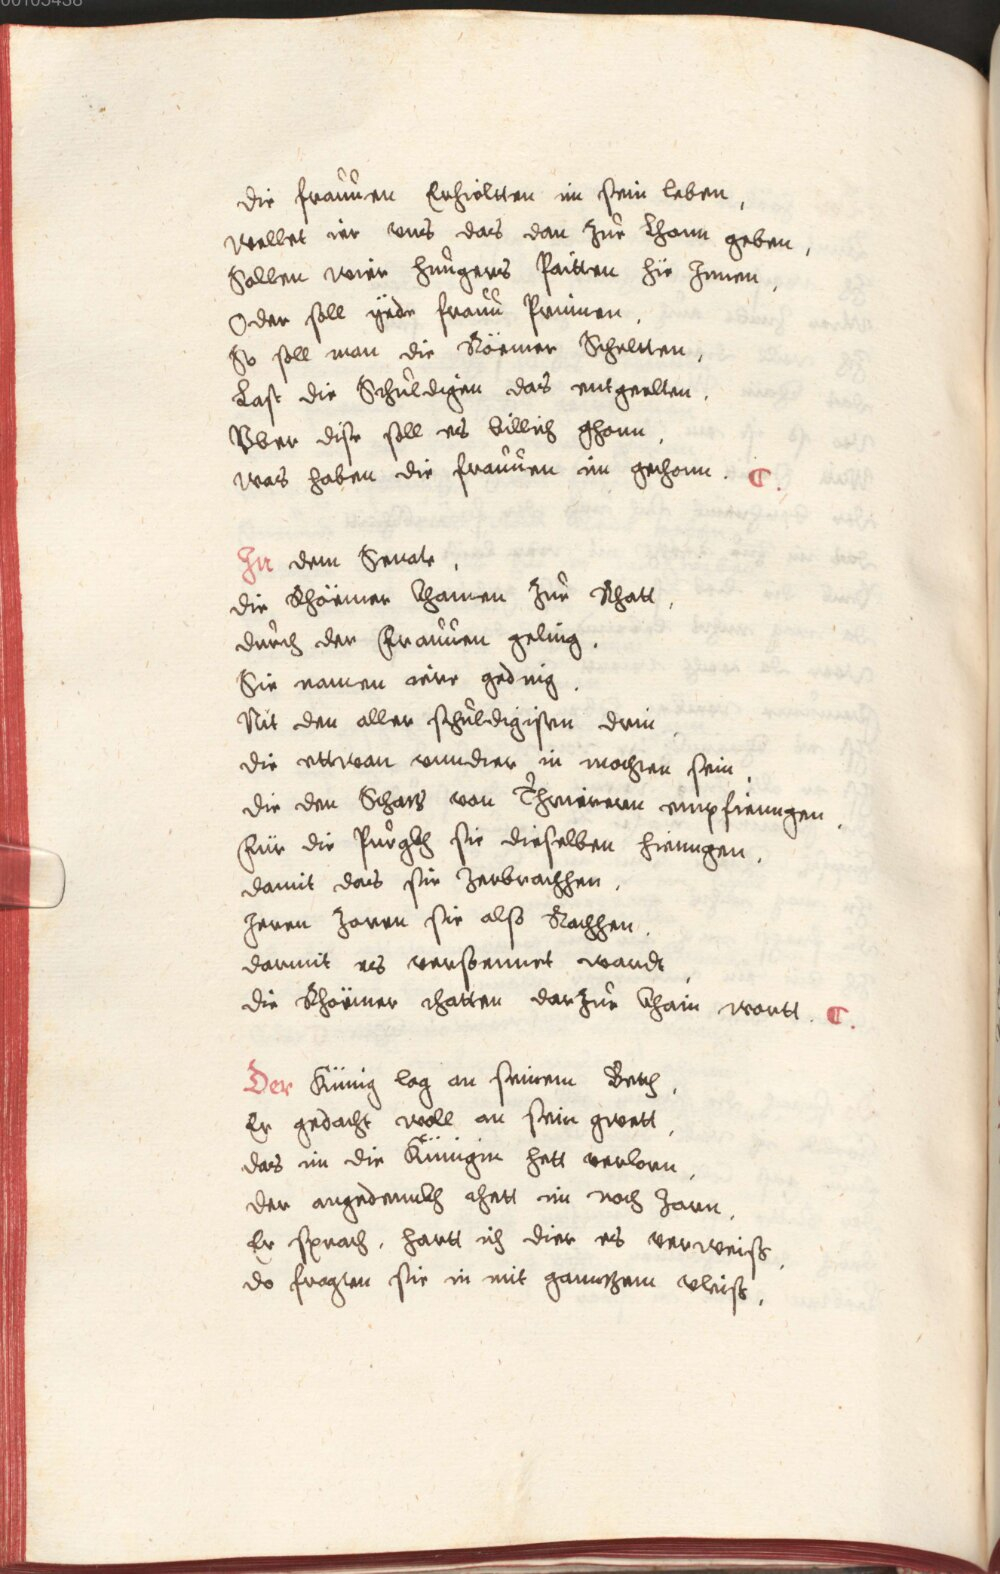 00103438
die frauuen Erhieltten im sein leben,
wellet ier vns das dan Zur khann geben,
Sollen wier hungers Paitten hie Innen,
Oder soll ÿede frauu Prinnen,
So soll man die Röemer Scheltten,
Last die Schuldigen das entgeelten,
Vber dise soll es billich ghonn,
was haben die frauuen im gethonn. C.
In dem Senate,
die Rhöemer khamen Zur Rhatt,
durch der Frauuen geling,
Sie namen ierr geding,
Mit den aller schuldigisten drein,
die ettwan vnndter in mochten sein,
die den Schatz von Thrierern empfienngen,
Für die Purgkh sie dieselben hienngen,
damit das sie Zerbrachhen,
Ieren Zoren sie also Rachhen,
darmit es versoennet wardt,
die Rhöemer thatten darZue khain wortt. C.
Der Künig lag an seinem Beth,
Er gedacht woll an sein gwett,
das im die Künigin hett verlorn,
der angedennkh thett im noch Zorn,
Er sprach, hartt ich dier es verweiss,
do fragten sie in mit ganntzem vleiss,